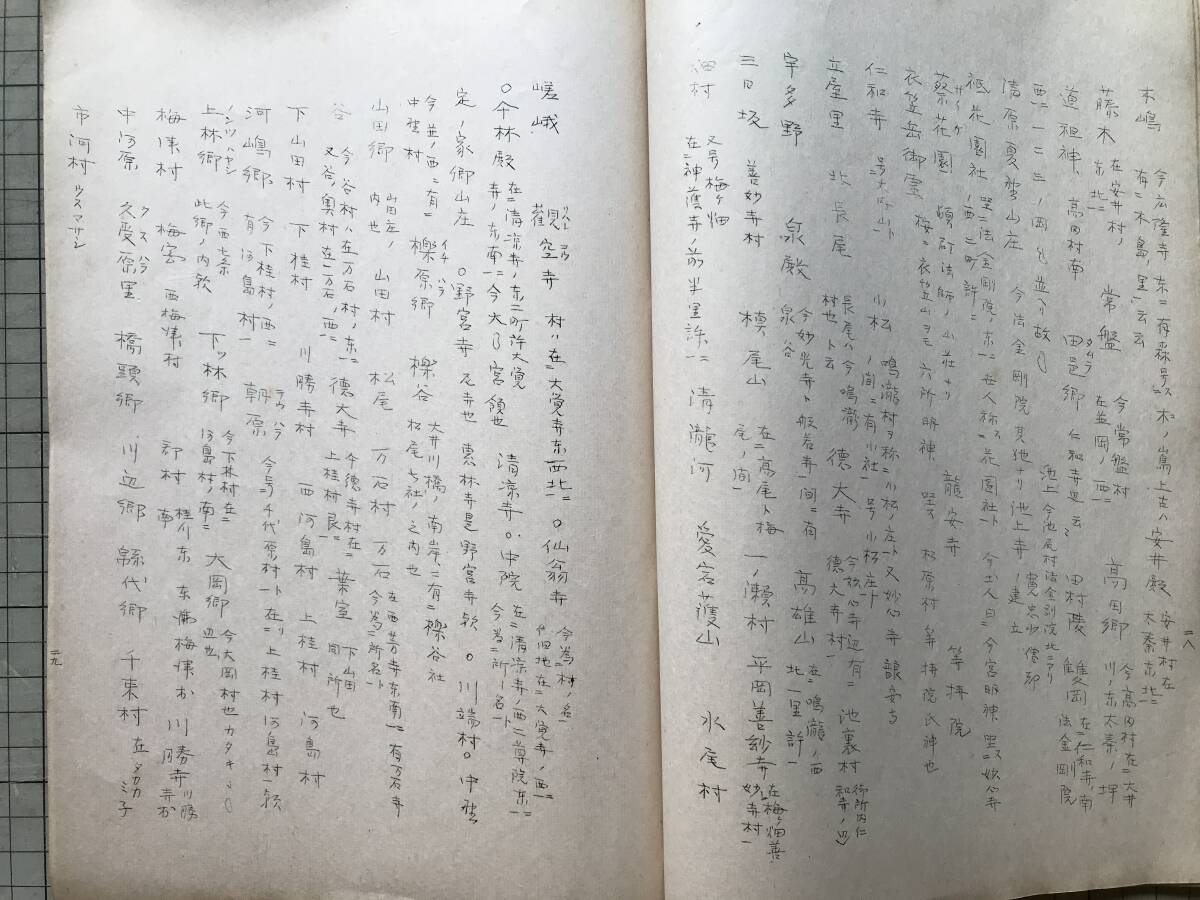 二八
木嶋 今広隆寺東ニ有森号ス木ノ嶌上古ハ安井殿 安井村在太秦東北ニ
有ニ木島里ニ云云
藤木 在安井村ノ東北ニ 常盤 今常盤村在並岡ノ西ニ 高田郷 今高田村在ニ大井川ノ東太秦ノ坤
道祖神 高田村南 田邑郷 タムラ 仁和寺辺云ニ 田村陵 雙岡 在ニ仁和寺ノ南法金剛院
西ニ一二三ノ岡
清原夏野山庄 今法金剛院其地ナリ池上寺 池上今池尾村法金剛院北ニアリ
祇花園社 坐ニ法金剛院ノ東ニ世人称ス花園社ト 今土人曰ニ今宮明神 坐ス妙心寺ノ西ニ町許ニ
蔡花園 サイケ 頓阿法師ノ山荘ナリ 龍安寺 等持院
衣笠岳御霊 按ニ衣笠山ヲモ六所明神 坐ス 松原村 等持院氏神也
仁和寺 号大内山ト 小松 鳴瀧村ヲ称ニ小松庄ト又妙心寺 龍安寺ノ間ニ有小社ニ号小松庄ト
立屋里 北長尾 長尾ハ今鳴瀧村也ト云 徳大寺 今妙心寺辺有ニ徳大寺村ニ 池裏村 御所内仁和寺ノ
宇多野 泉殿 泉谷 今妙光寺ト般若寺ニ間ニ有 高雄山 在ニ鳴瀧ノ西北一里許ニ
三日坂 善妙寺村 槙尾山 在ニ高尾ト梅尾ノ間ニ 一ノ瀬村 平岡善紗寺 在梅ヶ畑善妙寺村ニ
畑村 又号梅ヶ畑 在ニ神護寺ノ前半里許ニ 清瀧河 愛宕護山 水尾村
嵯峨 観空寺 村ハ在ニ大覚寺東西北ニ ○仙翁寺 今為ニ村ノ名ニ 旧地在ニ大覚寺ノ西ニ
○今林殿 在ニ清凉寺ノ東ニ町許大覚寺ノ東南ニ今大乃宮領也 清凉寺 ○中院 在ニ清凉寺ノ西二尊院東ニ今為ニ所ノ名ト
定ノ家卿山庄 ○野宮寺 尼寺也 恵林寺是野宮寺歟 ○川端村 ○中埜
中埜村 今並ノ西ニ有ニ 櫟原郷 イチハラ 櫟谷 大井川橋ノ南岸ニ有ニ櫟谷社 松尾七社ノ之内也
山田郷 山田庄ノ内也 山田村 松尾 万石村 万石 在西芳寺東南ニ有万石寺今為ニ所名ト
谷 今谷村ハ在万石村ノ東ニ又谷ノ奥村在ニ万石ノ西ニ 徳大寺 今徳寺村在ニ上桂村艮ニ 葉室 下山田同所也
下山田村 下桂村 川勝寺村 西河島村 上桂村 河島村
河嶋郷 今下桂村ノ西ニ有河島村ニ 朝原 今号千代原村ト在ニ上桂村河島村ニ歟
上林郷 今西七条此郷ノ内歟 下ッ林郷 今下林村在ニ河島村ノ南ニ 大岡郷 今大岡村也
梅津村 梅宮 西梅津村 郡村 南 桂川東 東梅津カ 川勝寺 川勝寺カ
中河原 久受原里 クスハラ 橋頭郷 川辺郷 縣代郷 千束村 在タカカミ子
市河村 ウスマサシ
二九